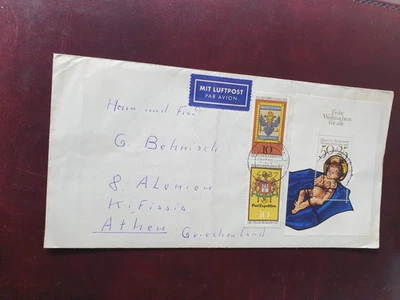 MIT LUFTPOST
PAR AVION
Herrn und Frau
G. Behnisch
8. Alonion
Kifissia
Athen Griechenland
10
Post Expedition
10
Frohe
Weihnachten
für alle
50+25